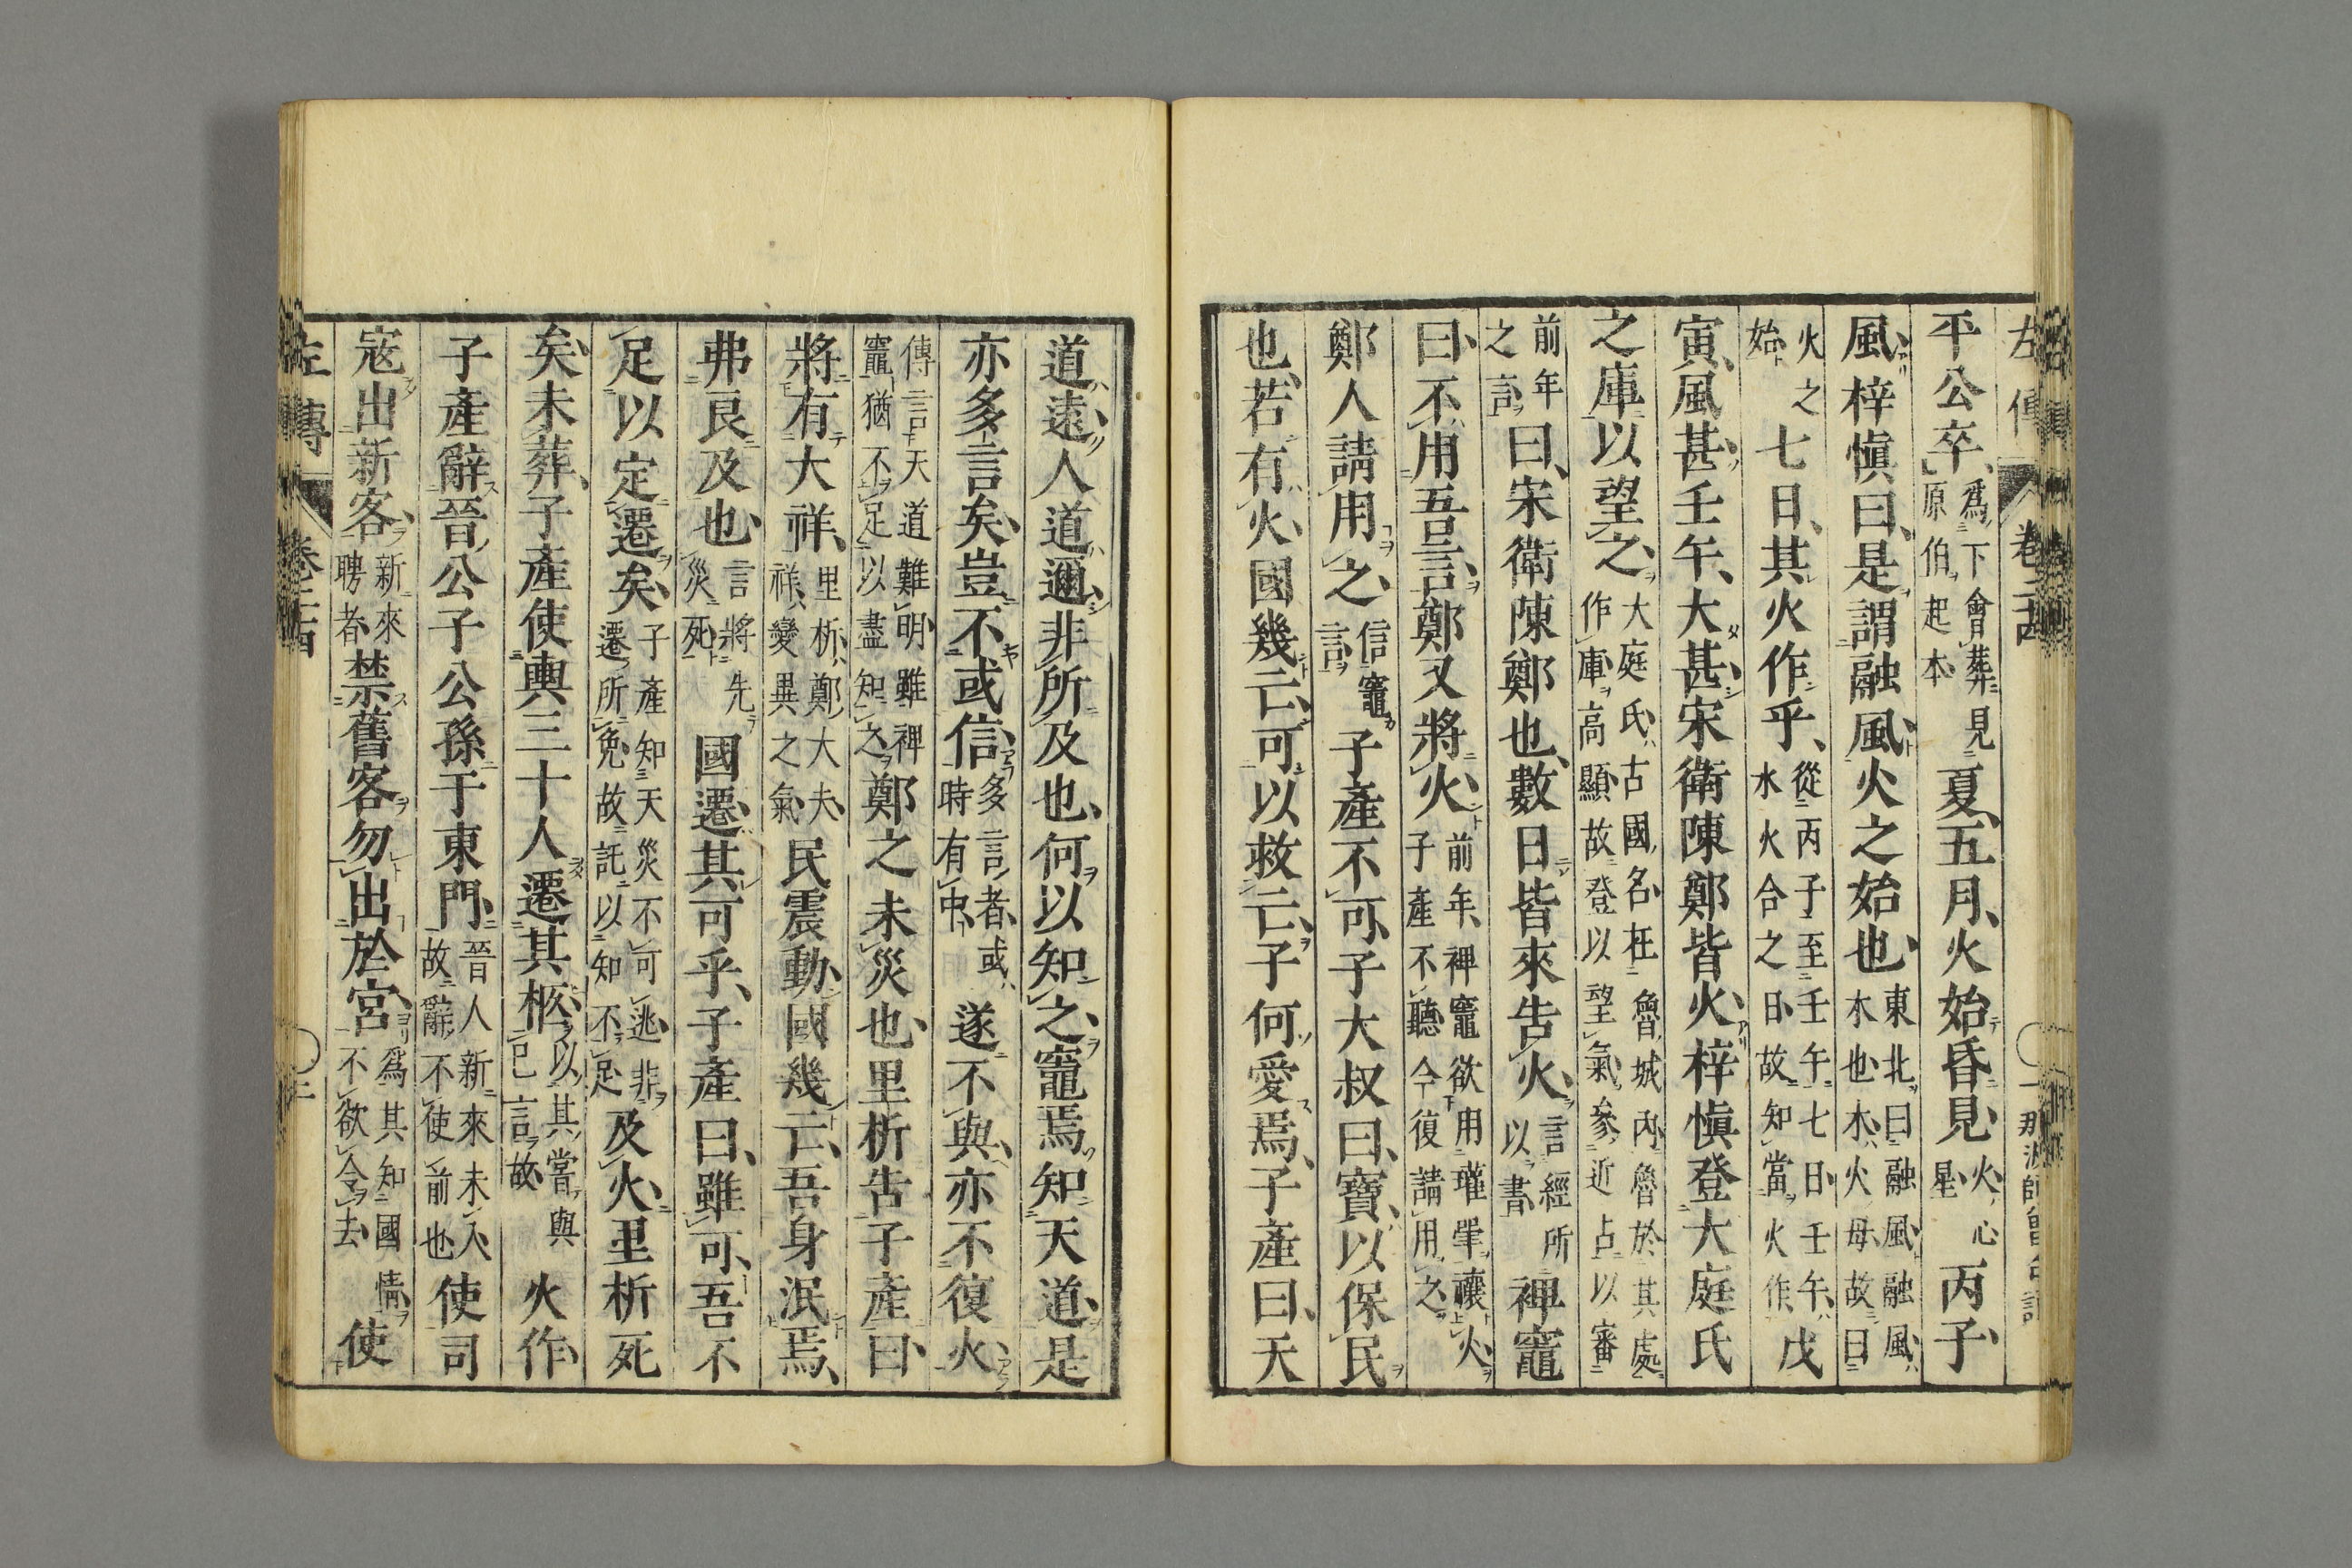 平公卒、爲下會葬見原伯起本夏、五月、火始昏見、火心星丙子、
風、梓愼曰、是謂融風、火之始也、東北曰融風融風木也木火母故曰
火之始七日、其火作乎、從丙子至壬午七日壬午水火合之日故知當火作戊
寅、風甚、壬午、大甚、宋衛陳鄭皆火、梓愼登大庭氏
之庫以望之、大庭氏古國名在魯城內魯於其處作庫高顯故登以望氣參近占以審
前年之言曰、宋衛陳鄭也、數日皆來告火、言經所以書禆竈
曰、不用吾言鄭又將火、前年、禆竈欲用瓘斝禳火子產不聽今復請用之
鄭人請用之、信竈言子產不可、子大叔曰、寶、以保民
也、若有火、國幾亡、可以救亡、子何愛焉、子產曰、天
道遠、人道邇、非所及也、何以知之、竈焉知天道、是
亦多言矣、豈不或信、多言者或時有中遂不與、亦不復火、
傳言天道難明雖禆竈猶不足以盡知之鄭之未災也、里析告子產曰、
將有大祥、里析鄭大夫祥變異之氣民震動、國幾亡、吾身泯焉、
弗良及也、言將先災死國遷、其可乎、子產曰、雖可、吾不
足以定遷矣、子產知天災不可逃非遷所免故託以知不足及火、里析死
矣、未葬、子產使輿三十人遷其柩、以其嘗與己言故火作、
子產辭晉公子公孫于東門、晉人新來未入故辭不使前也使司
寇出新客、新來聘者禁舊客勿出於宮、爲其知國情不欲令去使
左傳 卷二十四